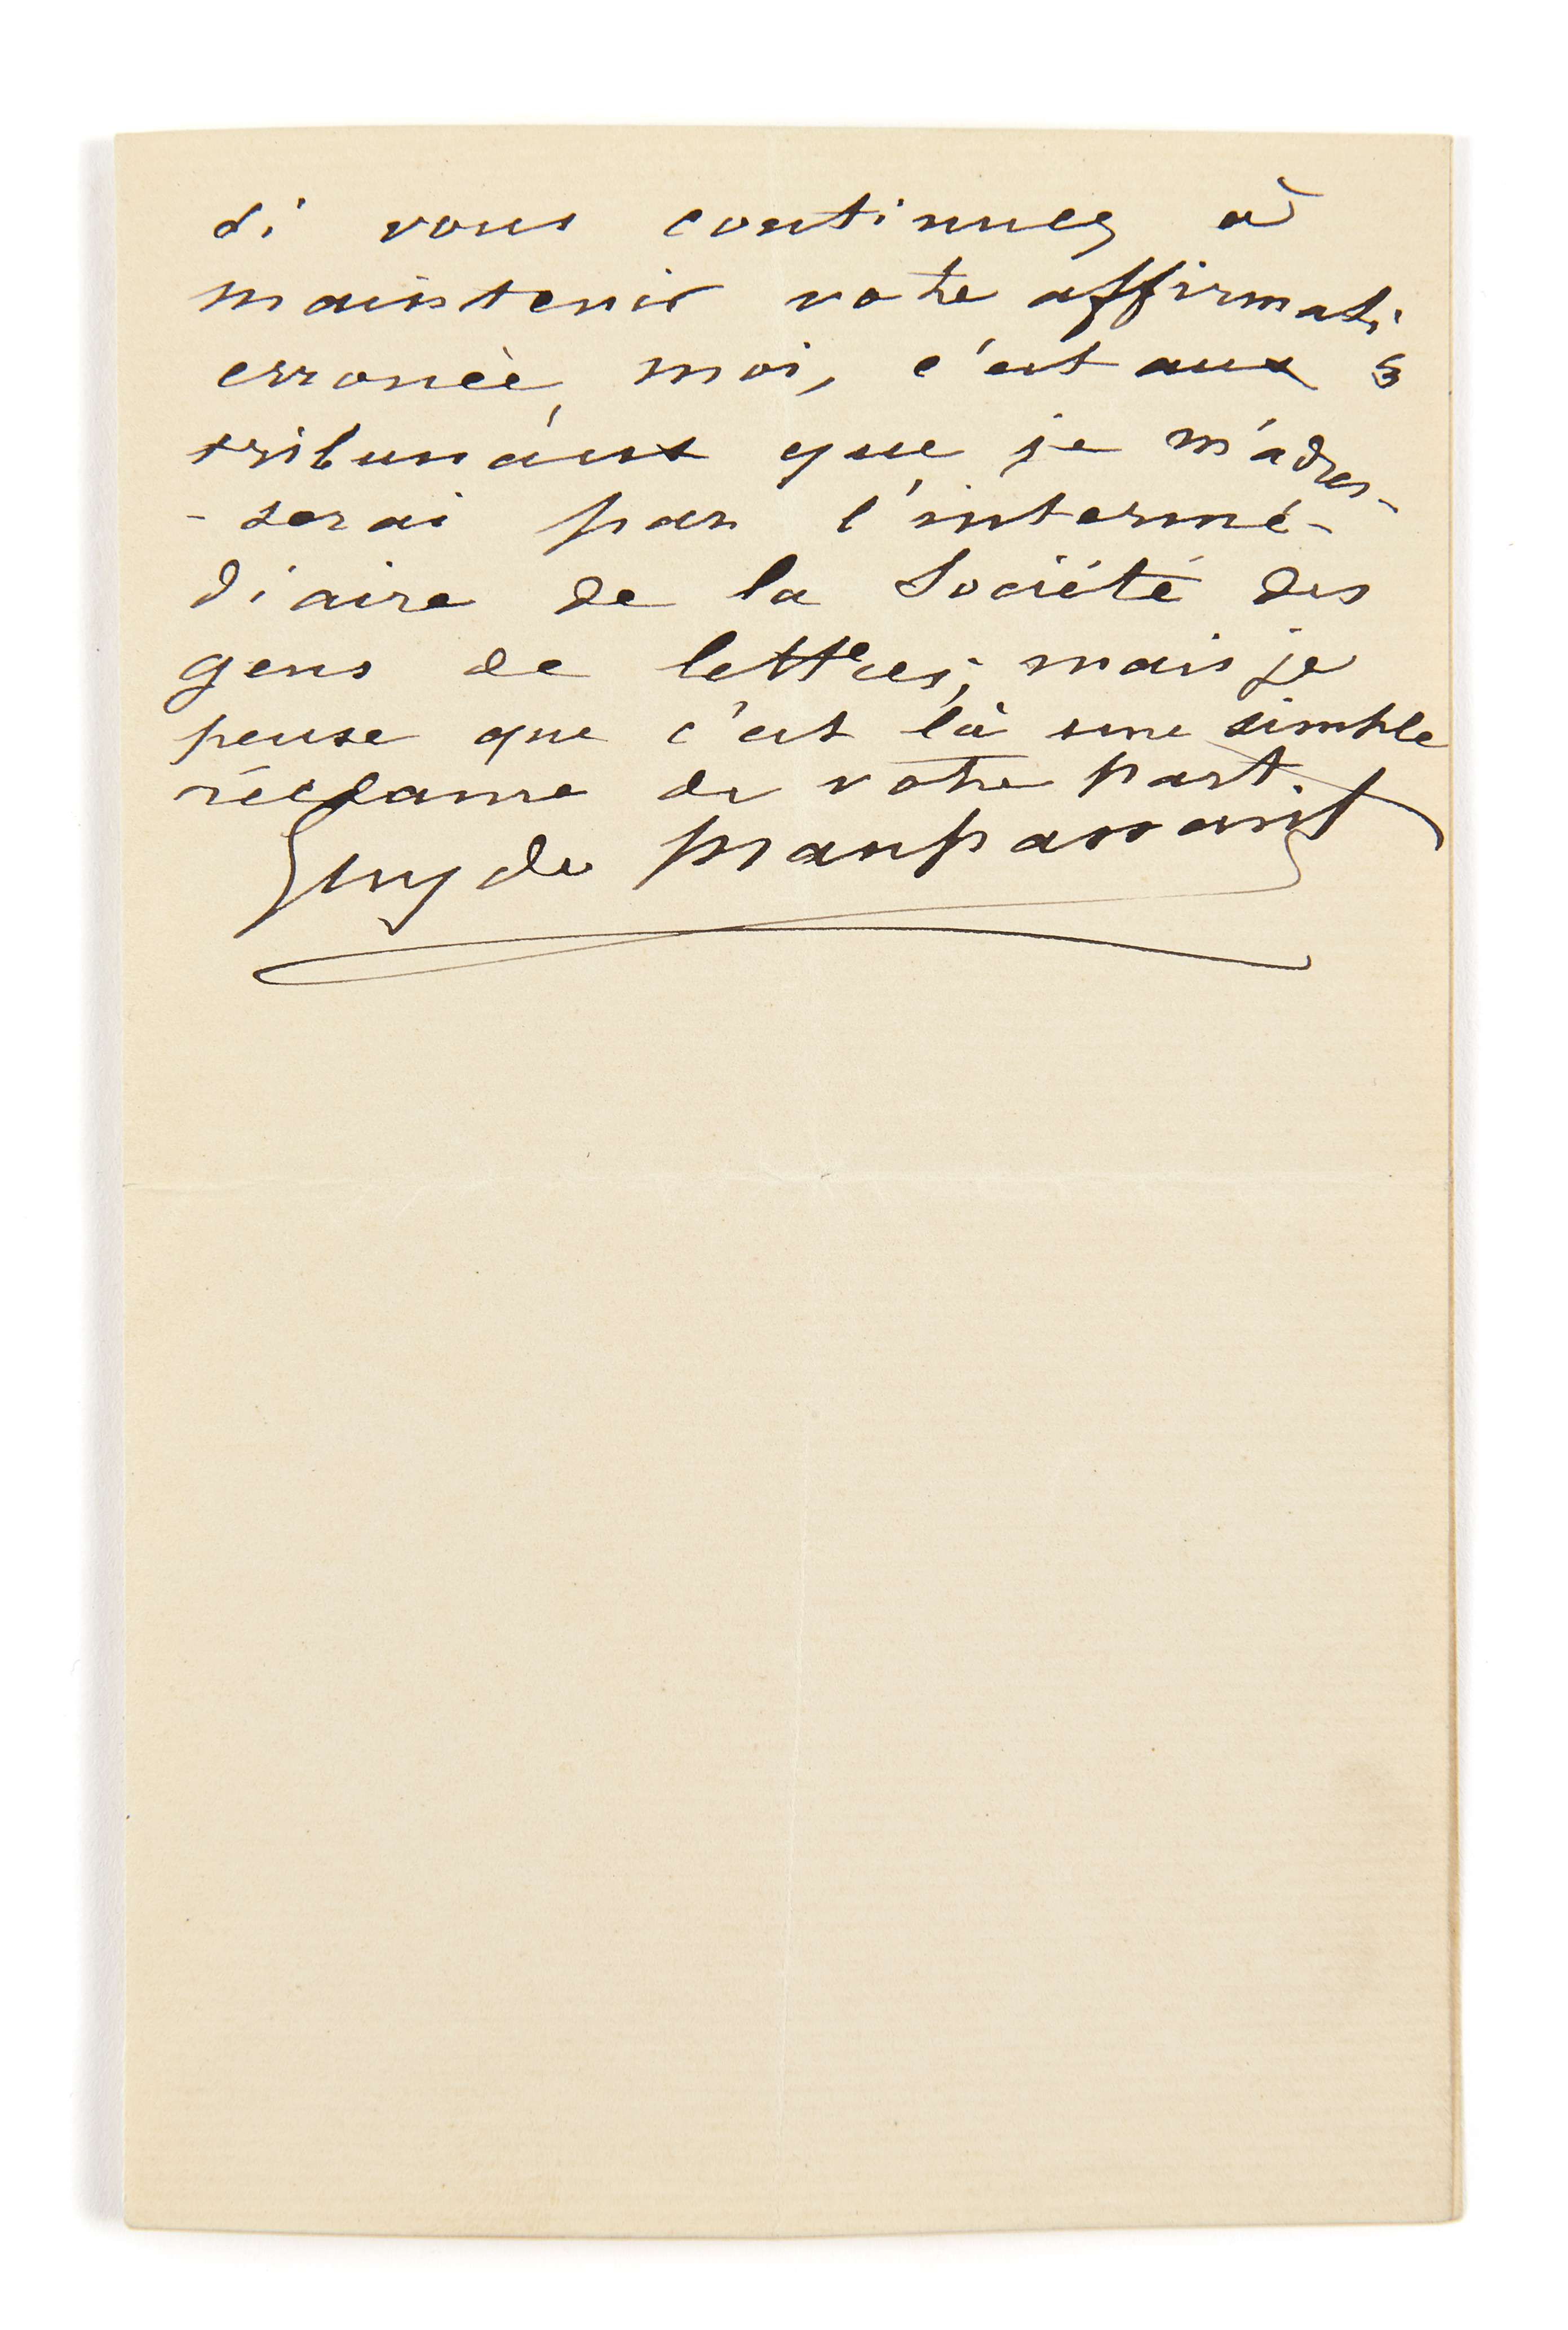 si vous continuez à
maintenir votre affirmation
erronée, moi, c'est aux
tribunaux que je m'adres-
-serai par l'intermé-
diaire de la Société des
gens de lettres; mais je
pense que c'est là une simple
réclame de votre part.
Guy de Maupassant